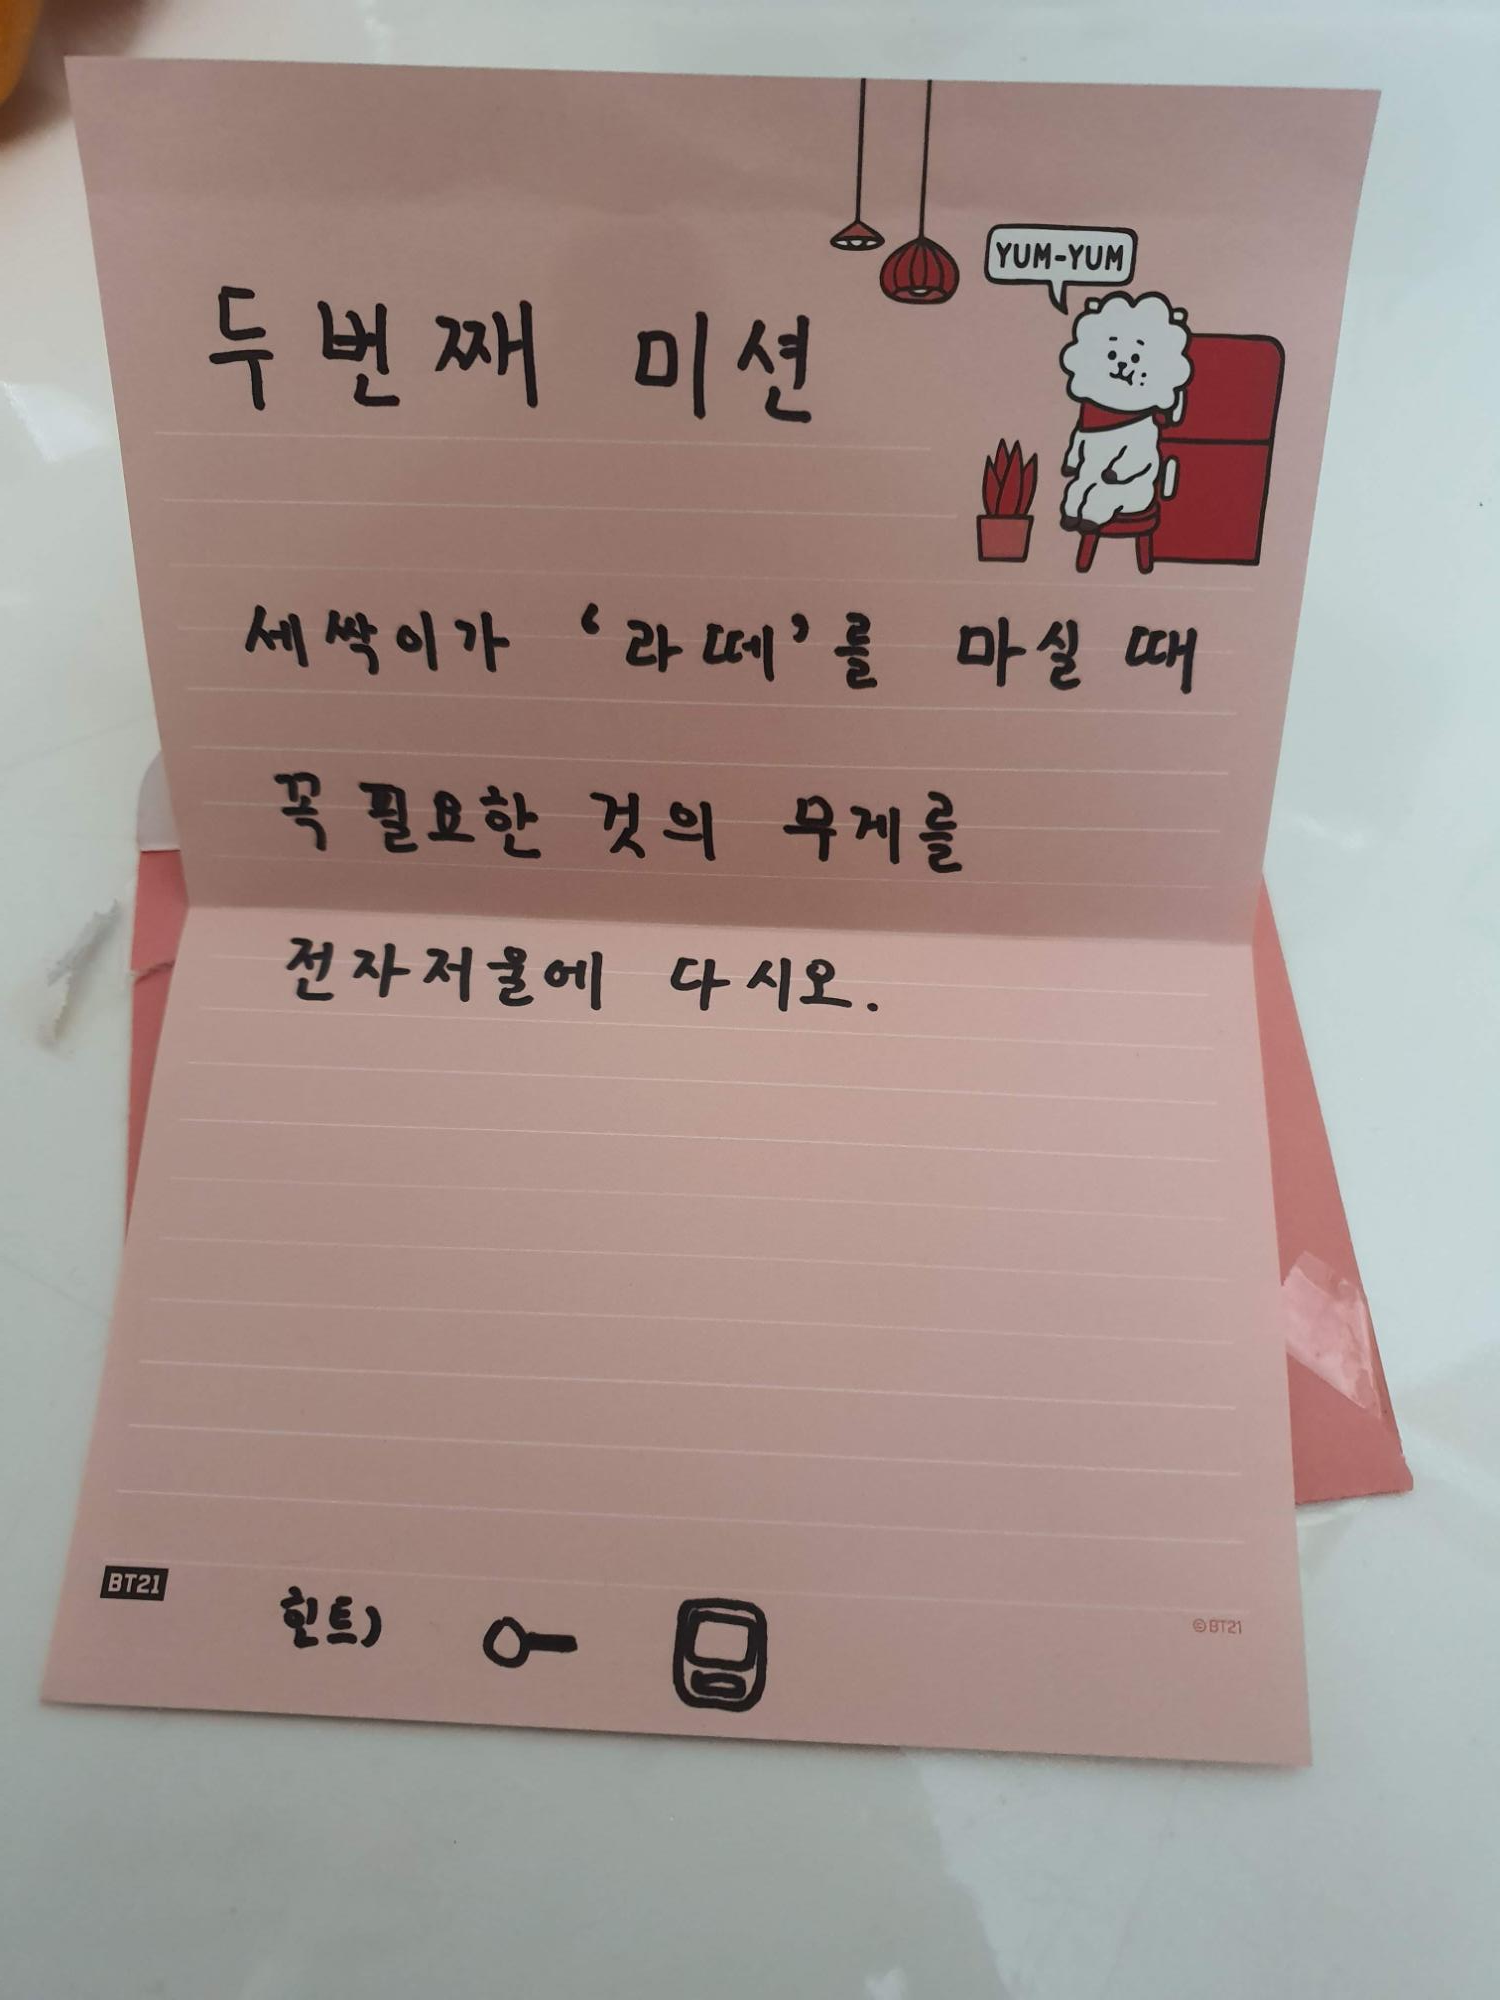 YUM-YUM
두번째 미션
세싹이가 '라떼'를 마실 때
꼭 필요한 것의 무게를
전자저울에 다시오.
BT21
힌트)
©BT21